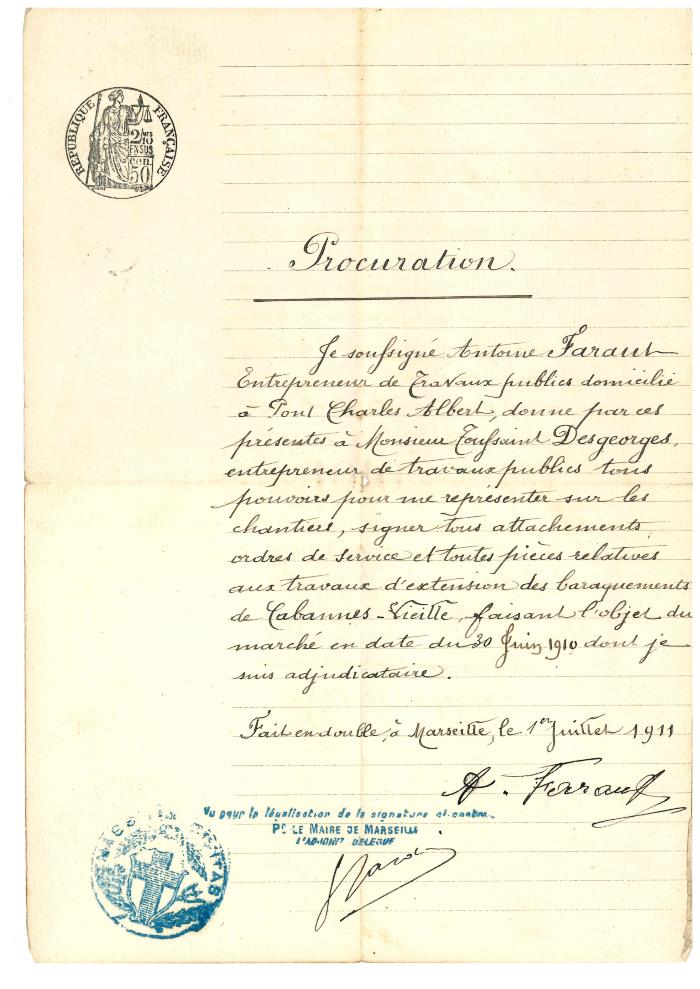 RÉPUBLIQUE FRANÇAISE
2/10 EN SUS
CEN. 50
Procuration.
Je soussigné Antoine Faraut
Entrepreneur de Travaux publics domicilié
à Pont Charles Albert, donne par ces
présentes à Monsieur Toussaint Desgeorges,
entrepreneur de travaux publics tous
pouvoirs pour me représenter sur les
chantiers, signer tous attachements,
ordres de service et toutes pièces relatives
aux travaux d'extension des baraquements
de Cabannes-Vieille, faisant l'objet du
marché en date du 30 Juin 1910 dont je
suis adjudicataire.
Fait en double, à Marseille, le 1er Juillet 1911
A. Ferraut
Vu pour la légalisation de la signature ci-contre
Pr LE MAIRE DE MARSEILLE
L'ADJOINT DÉLÉGUÉ